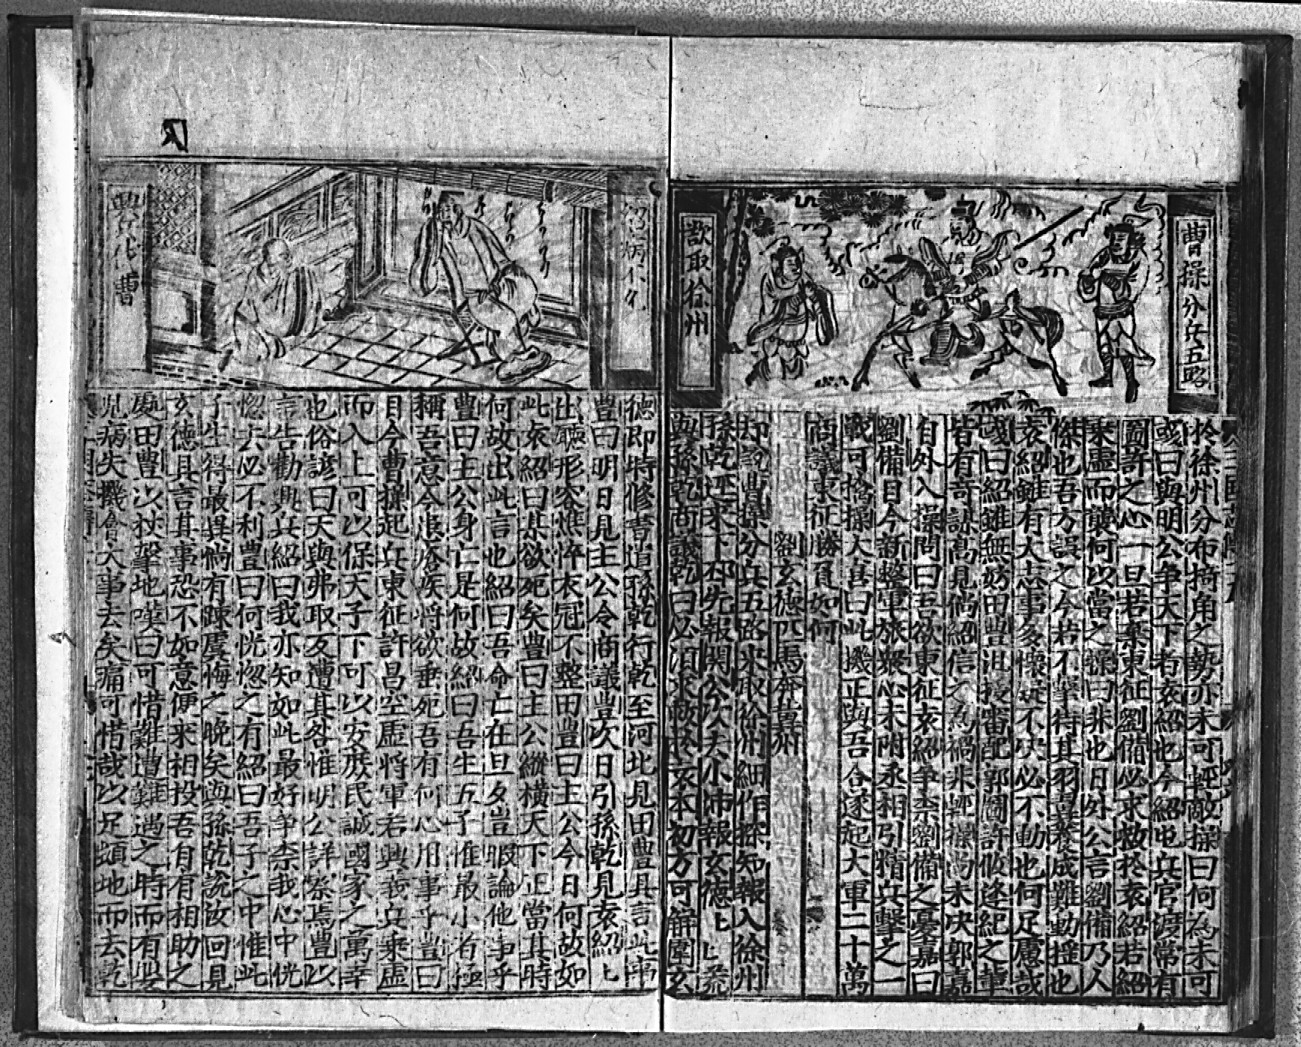 曹操分兵五路
欲取徐州
於徐州分布掎角之勢亦未可輕敵操曰何為未可
或曰與明公爭天下者袁紹也今紹屯兵官渡常有
圖許之心一旦若棄東征劉備必求救於袁紹若紹
乘虛而襲何以當之操曰非也日外公言劉備乃人
傑也吾方誤之今若不擊待其羽翼養成難動搖也
袁紹雖有大志事多懷疑不決必不動也何足慮哉
或曰紹雖無妨田豐沮授審配郭圖許攸逢紀之輩
皆有奇謀高見倘紹信之為禍非輕操尚未決郭嘉
自外入操問曰吾欲東征袁紹爭柰劉備之憂嘉曰
劉備目今新整軍旅眾心未附丞相引精兵擊之一
戰可擒操大喜曰此機正與吾合遂起大軍二十萬
商議東征勝負如何
劉玄德匹馬奔冀州
却說曹操分兵五路來取徐州細作探知報入徐州
孫乾逕來下邳先報関公次去小沛報玄德
與孫乾商議乾曰必須求救於袁本初方可解圍玄
德即時修書遣孫乾行乾至河北見田豐具言此事
豐曰明日見主公令商議豐次日引孫乾見袁紹
出廳形容憔悴衣冠不整田豐曰主公今日何故如
此袁紹曰某欲死矣豐曰主公縱橫天下正當其時
何故出此言也紹曰吾命亡在旦夕豈暇論他事乎
豐曰主公身亡是何故紹曰吾生五子惟最小者極
稱吾意今患瘡疾將欲垂死吾有何心用事乎豐曰
目今曹操起兵東征許昌空虛將軍若興義兵乘虛
而入上可以保天子下可以安庶民誠國家之萬幸
也俗諺曰天與弗取反遭其咎惟明公詳察焉豐以
言告勸興兵紹曰我亦知如此最好爭柰我心中恍
惚去必不利豐曰何恍惚之有紹曰吾子之中惟此
子生得最異倘有踈虞悔之晚矣與孫乾說汝回見
玄德具言其事恐不如意便來相投吾自有相助之
處田豐以杖擊地嘆曰可惜難遭難遇之時而有嬰
兒病失機會大事去矣痛可惜哉以足頓地而去乾